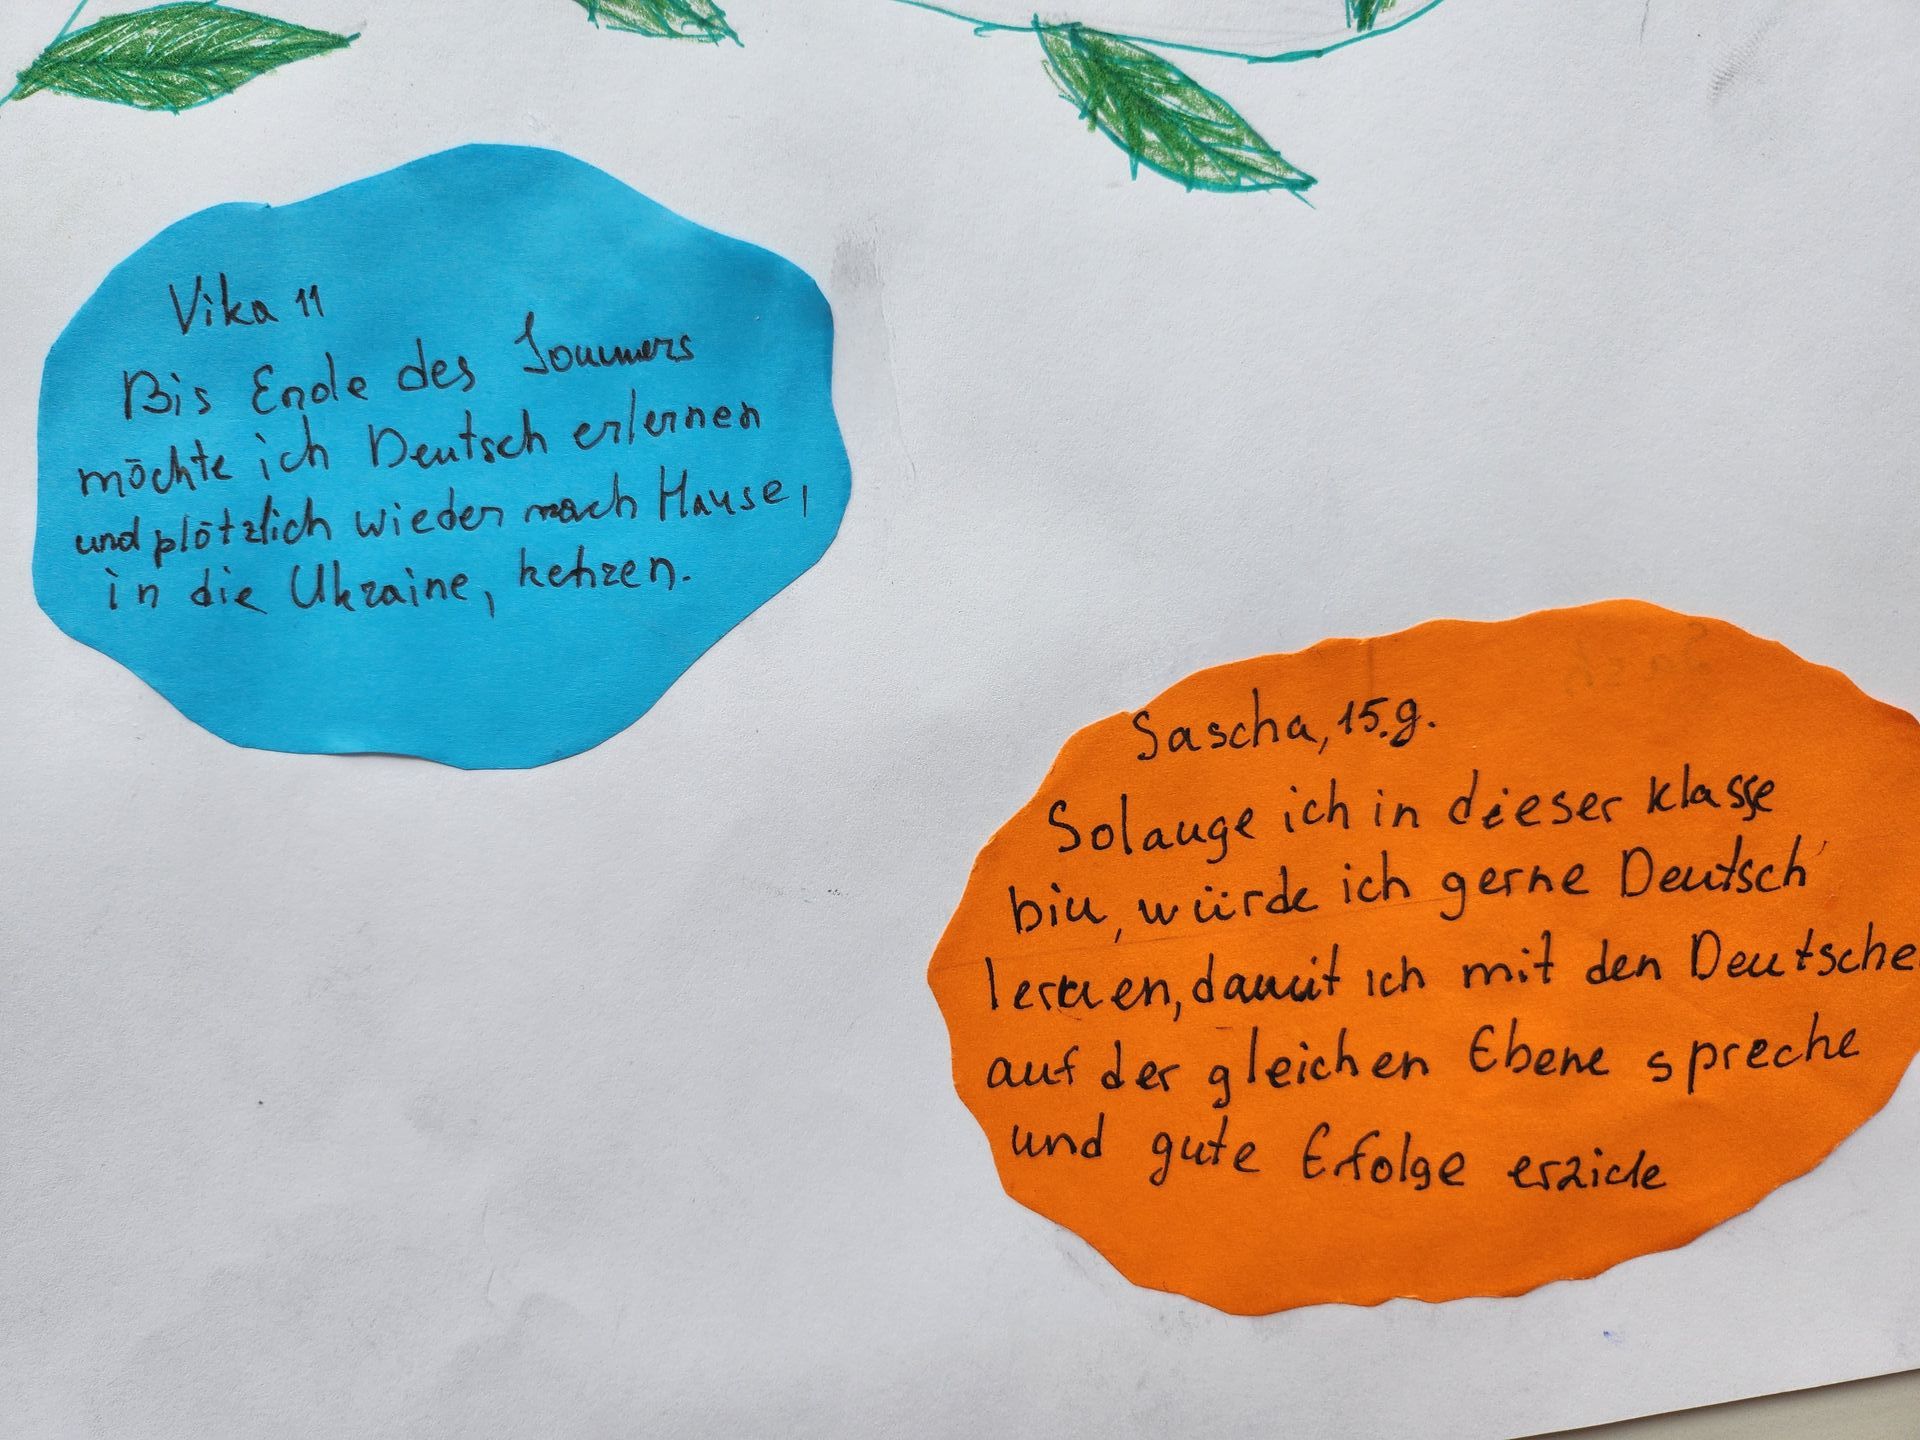 Vika 11
Bis Ende des Sommers
möchte ich Deutsch erlernen
und plötzlich wieder nach Hause,
in die Ukraine, kehren.
Sascha, 15.g.
Solange ich in dieser Klasse
bin, würde ich gerne Deutsch
lernen, damit ich mit den Deutsche
auf der gleichen Ebene spreche
und gute Erfolge erziele